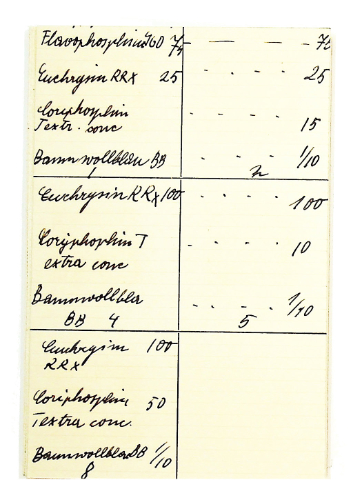 Flavophosphin 460 75 — — — 75
Euchrysin RRX 25 - - - - 25
Coriphosphin
Textr. conc - - - - 15
Baumwollblau BB - - - 1/10
Euchrysin RRX 100 - - - - 100
Coriphosphin T - - - - 10
extra conc
Baumwollbla - - - - 1/10
BB 4 5
Euchrysin 100
RRX
Coriphosphin 50
Textra conc.
Baumwollbla BB 1/10
8